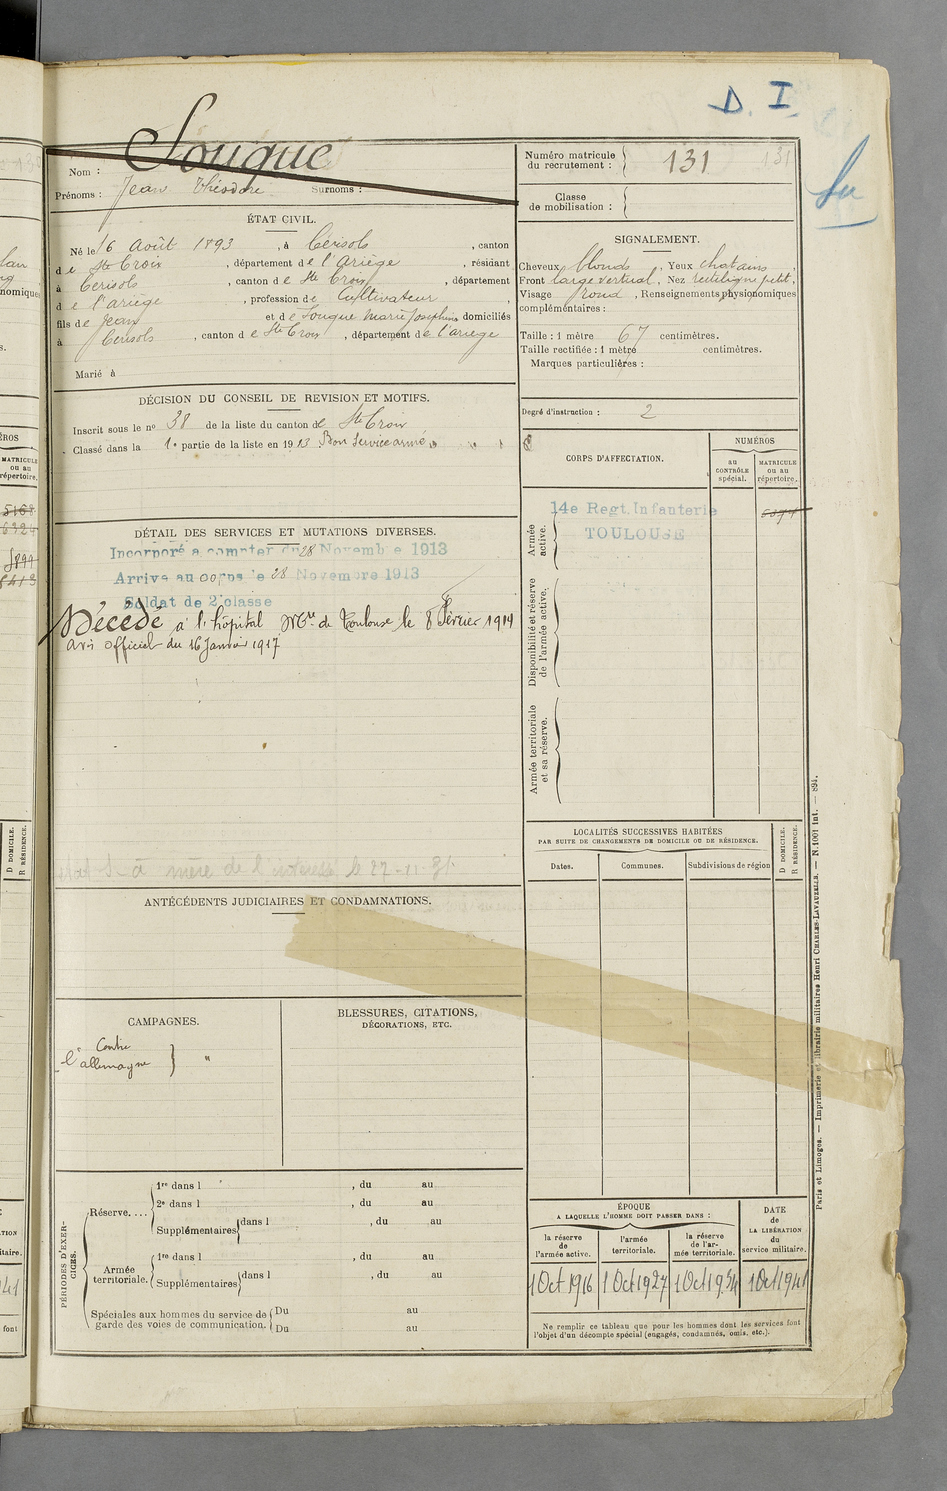 D. I.
Nom : Souque
Prénoms : Jean Théodore Surnoms :
Numéro matricule du recrutement : 131 131
Classe de mobilisation :
ÉTAT CIVIL.
Né le 16 Août 1893, à Cérisols, canton
de Ste Croix, département de l'Ariège, résidant
à Cérisols, canton de Ste Croix, département
de l'ariège, profession de Cultivateur,
fils de Jean et de Souque Marie Josephine domiciliés
à Cérisols, canton de Ste Croix, département de l'ariège
Marié à
SIGNALEMENT.
Cheveux blonds, Yeux chatains,
Front large vertical, Nez rectiligne petit,
Visage rond, Renseignements physionomiques
complémentaires :
Taille : 1 mètre 67 centimètres.
Taille rectifiée : 1 mètre centimètres.
Marques particulières :
Degré d'instruction : 2
DÉCISION DU CONSEIL DE REVISION ET MOTIFS.
Inscrit sous le nº 38 de la liste du canton de Ste Croix
Classé dans la 1e partie de la liste en 1913. Bon Service armé
CORPS D'AFFECTATION.
NUMÉROS
au CONTRÔLE spécial.
MATRICULE ou au répertoire.
Armée active.
14e Regt. Infanterie
TOULOUSE
Disponibilité et réserve de l'armée active.
Armée territoriale et sa réserve.
DÉTAIL DES SERVICES ET MUTATIONS DIVERSES.
Incorporé a compter du 28 Novembre 1913
Arrivé au corps le 28 Novembre 1913
Soldat de 2e classe
Décédé à l'hôpital Mre de Toulouse le 8 Février 1914
avis officiel du 16 Janvier 1917
à mère de l'intéressé le 27-11-31
ANTÉCÉDENTS JUDICIAIRES ET CONDAMNATIONS.
LOCALITÉS SUCCESSIVES HABITÉES
PAR SUITE DE CHANGEMENTS DE DOMICILE OU DE RÉSIDENCE.
Dates.
Communes.
Subdivisions de région
D DOMICILE.
R RÉSIDENCE.
CAMPAGNES.
Contre
l'allemagne } "
BLESSURES, CITATIONS,
DÉCORATIONS, ETC.
PÉRIODES D'EXERCICES.
Réserve....
1re dans l , du au
2e dans l , du au
Supplémentaires dans l , du au
Armée territoriale.
1re dans l , du au
Supplémentaires dans l , du au
Spéciales aux hommes du service de garde des voies de communication.
Du au
Du au
ÉPOQUE
A LAQUELLE L'HOMME DOIT PASSER DANS :
la réserve de l'armée active.
l'armée territoriale.
la réserve de l'armée territoriale.
DATE de LA LIBÉRATION du service militaire.
1 Oct 1916
1 Oct 1927
1 Oct 1934
1 Oct 1941
Ne remplir ce tableau que pour les hommes dont les services font
l'objet d'un décompte spécial (engagés, condamnés, omis, etc.).
Paris et Limoges. — Imprimerie et librairie militaires Henri CHARLES-LAVAUZELLE. — N. 1001 int. — 894.